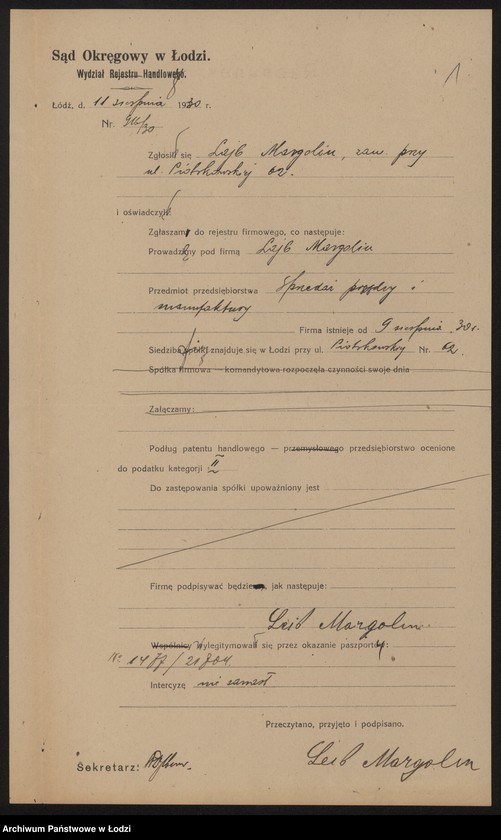 1
Sąd Okręgowy w Łodzi.
Wydział Rejestru Handlowego.
Łódź, d. 11 sierpnia 1930 r.
Nr.
Zgłosił się Lajb Margolin, zam. przy
ul. Piotrkowskiej 62.
i oświadczył:
Zgłaszam do rejestru firmowego, co następuje:
Prowadzę pod firmą Lajb Margolin
Przedmiot przedsiębiorstwa Sprzedaż przędzy i
manufaktury
Firma istnieje od 9 sierpnia 30 r.
Siedziba spółki znajduje się w Łodzi przy ul. Piotrkowskiej Nr. 62
Spółka firmowa — komandytowa rozpoczęła czynności swoje dnia
Załączamy:
Podług patentu handlowego — przemysłowego przedsiębiorstwo ocenione
do podatku kategorji II
Do zastępowania spółki upoważniony jest
Firmę podpisywać będzie, jak następuje:
Leib Margolin
Wspólnicy wylegitymował się przez okazanie paszportu:
Nr
Intercyzę nie zawarł
Przeczytano, przyjęto i podpisano.
Sekretarz:
Leib Margolin
Archiwum Państwowe w Łodzi